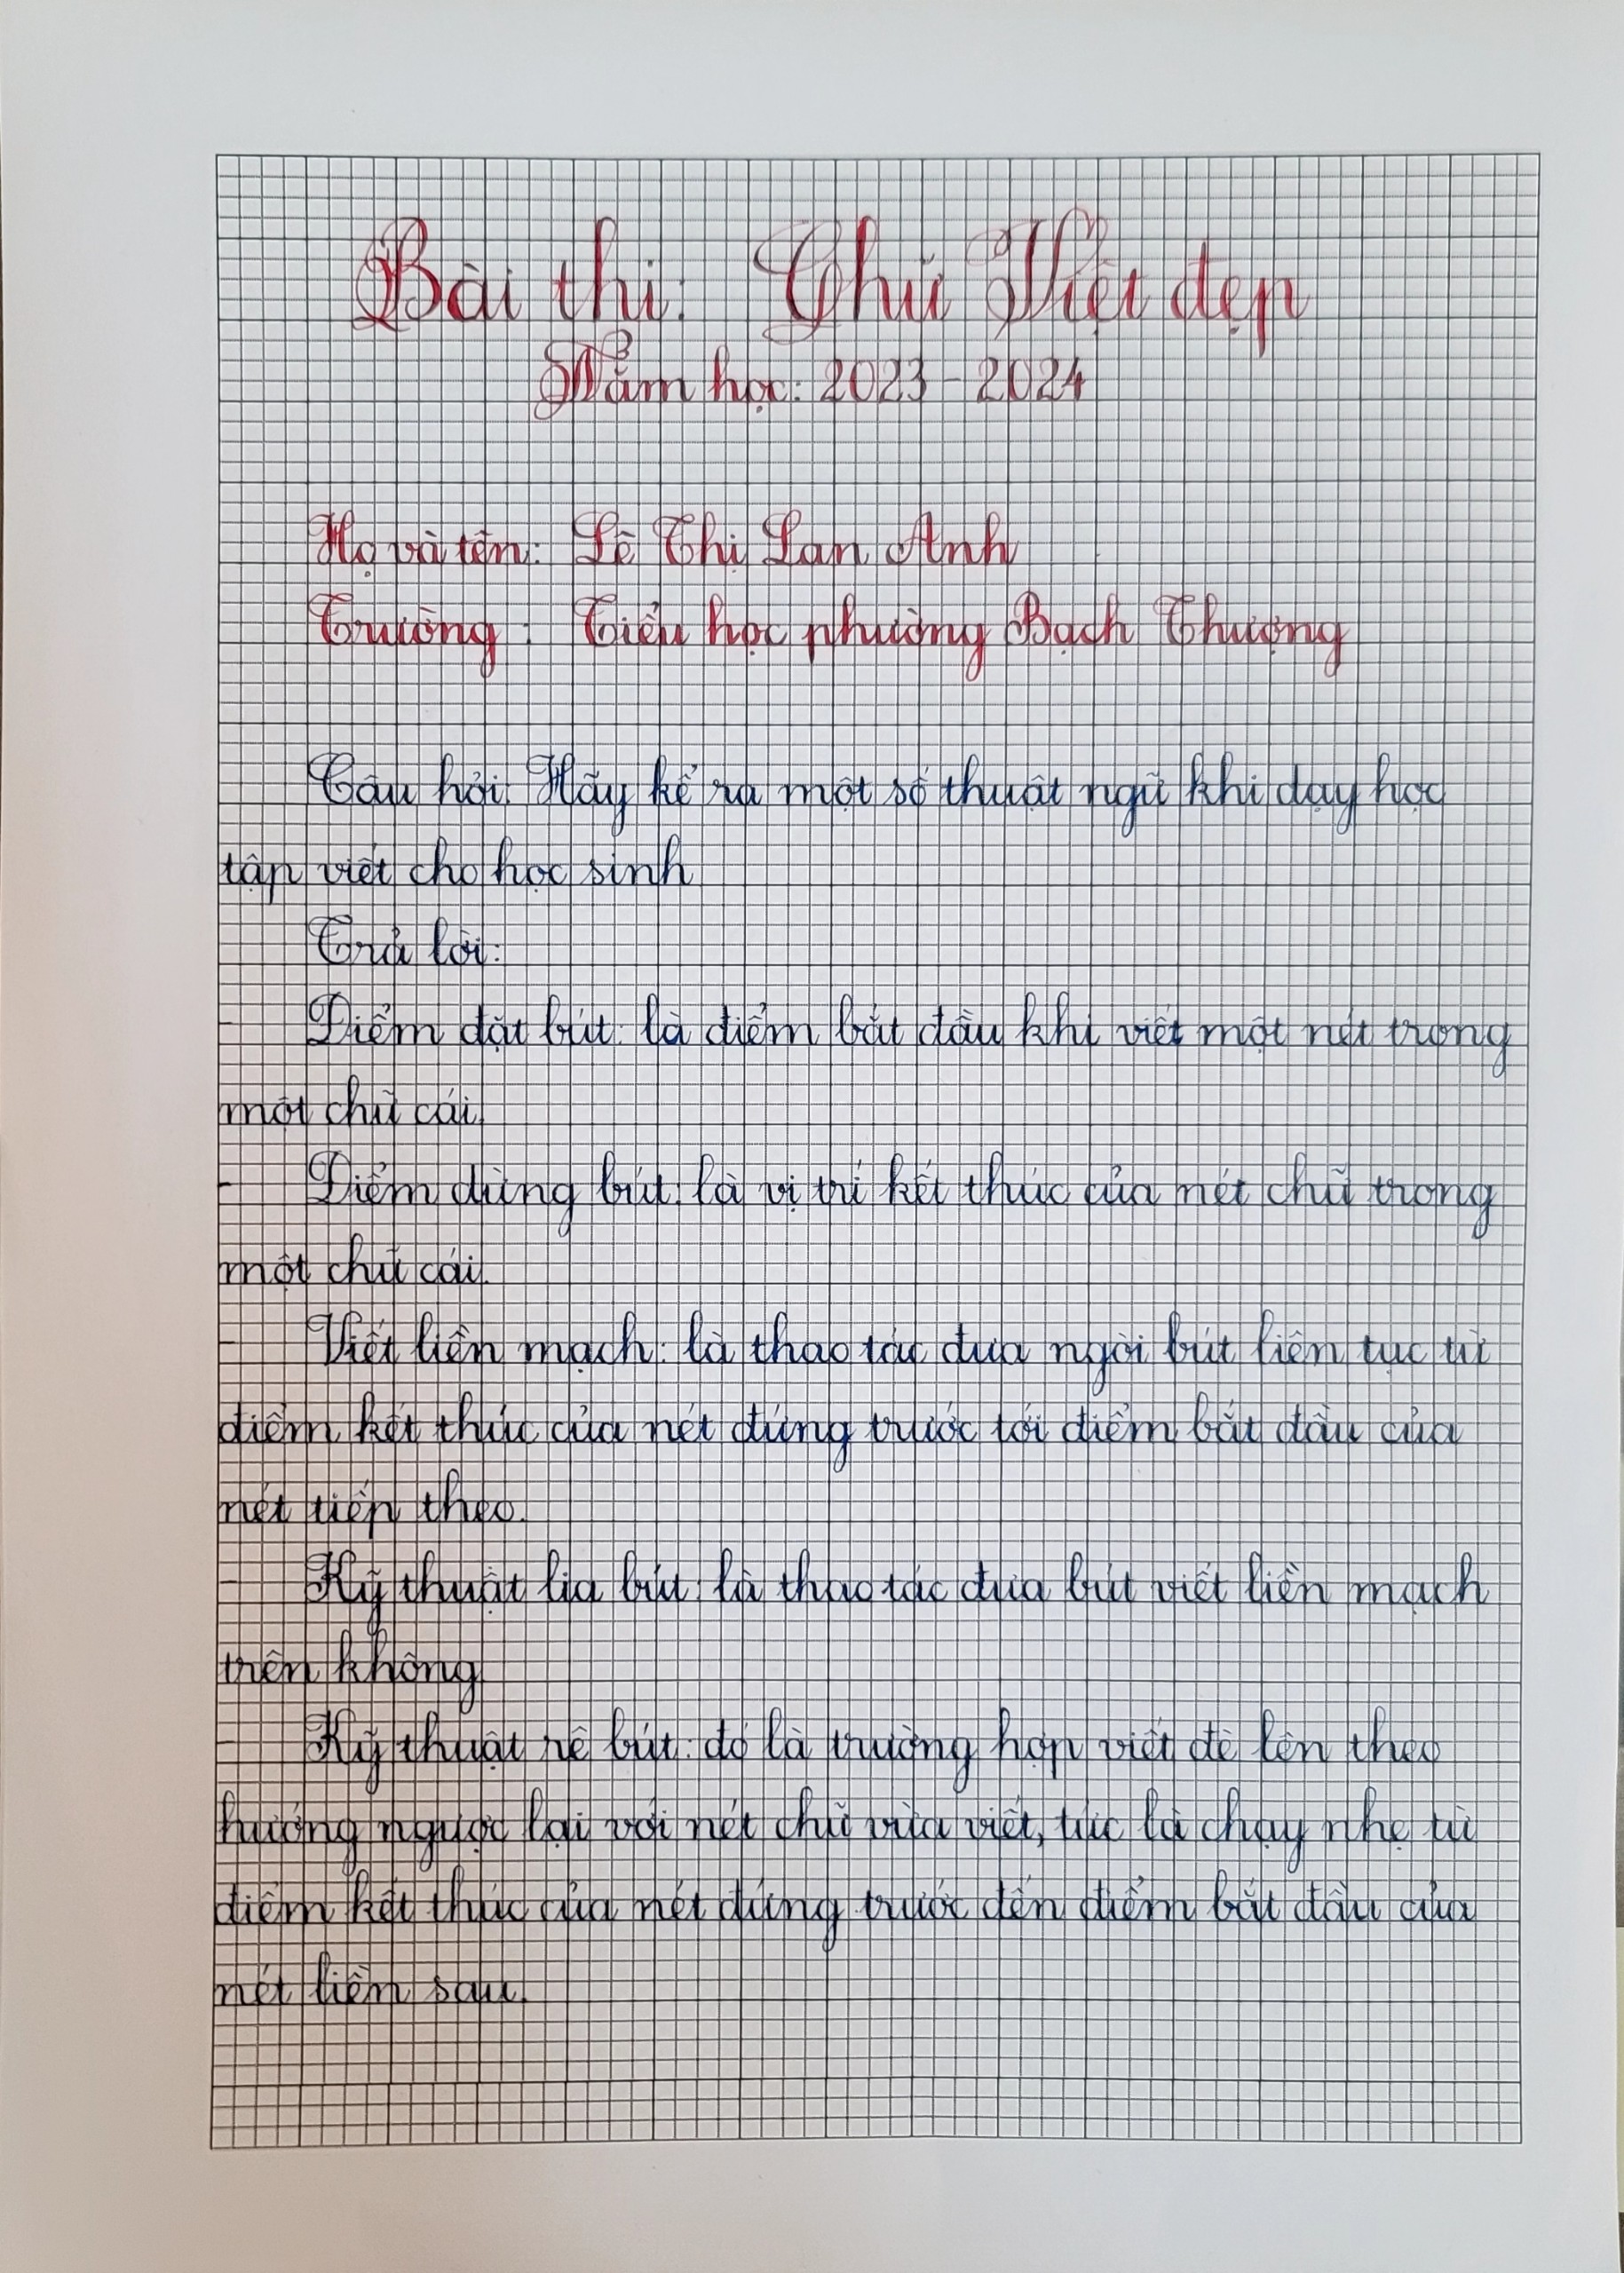 Bài thi: Chữ Viết đẹp
Năm học: 2023 - 2024
Họ và tên: Lê Thị Lan Anh
Trường: Tiểu học phường Bạch Thượng
Câu hỏi: Hãy kể ra một số thuật ngữ khi dạy học
tập viết cho học sinh
Trả lời:
- Điểm đặt bút: là điểm bắt đầu khi viết một nét trong
một chữ cái.
- Điểm dừng bút: là vị trí kết thúc của nét chữ trong
một chữ cái.
- Viết liền mạch: là thao tác đưa ngòi bút liên tục từ
điểm kết thúc của nét đứng trước tới điểm bắt đầu của
nét tiếp theo.
- Kỹ thuật lia bút: là thao tác đưa bút viết liền mạch
trên không
- Kỹ thuật rê bút: đó là trường hợp viết đè lên theo
hướng ngược lại với nét chữ vừa viết, tức là chạy nhẹ từ
điểm kết thúc của nét đứng trước đến điểm bắt đầu của
nét liềm sau.